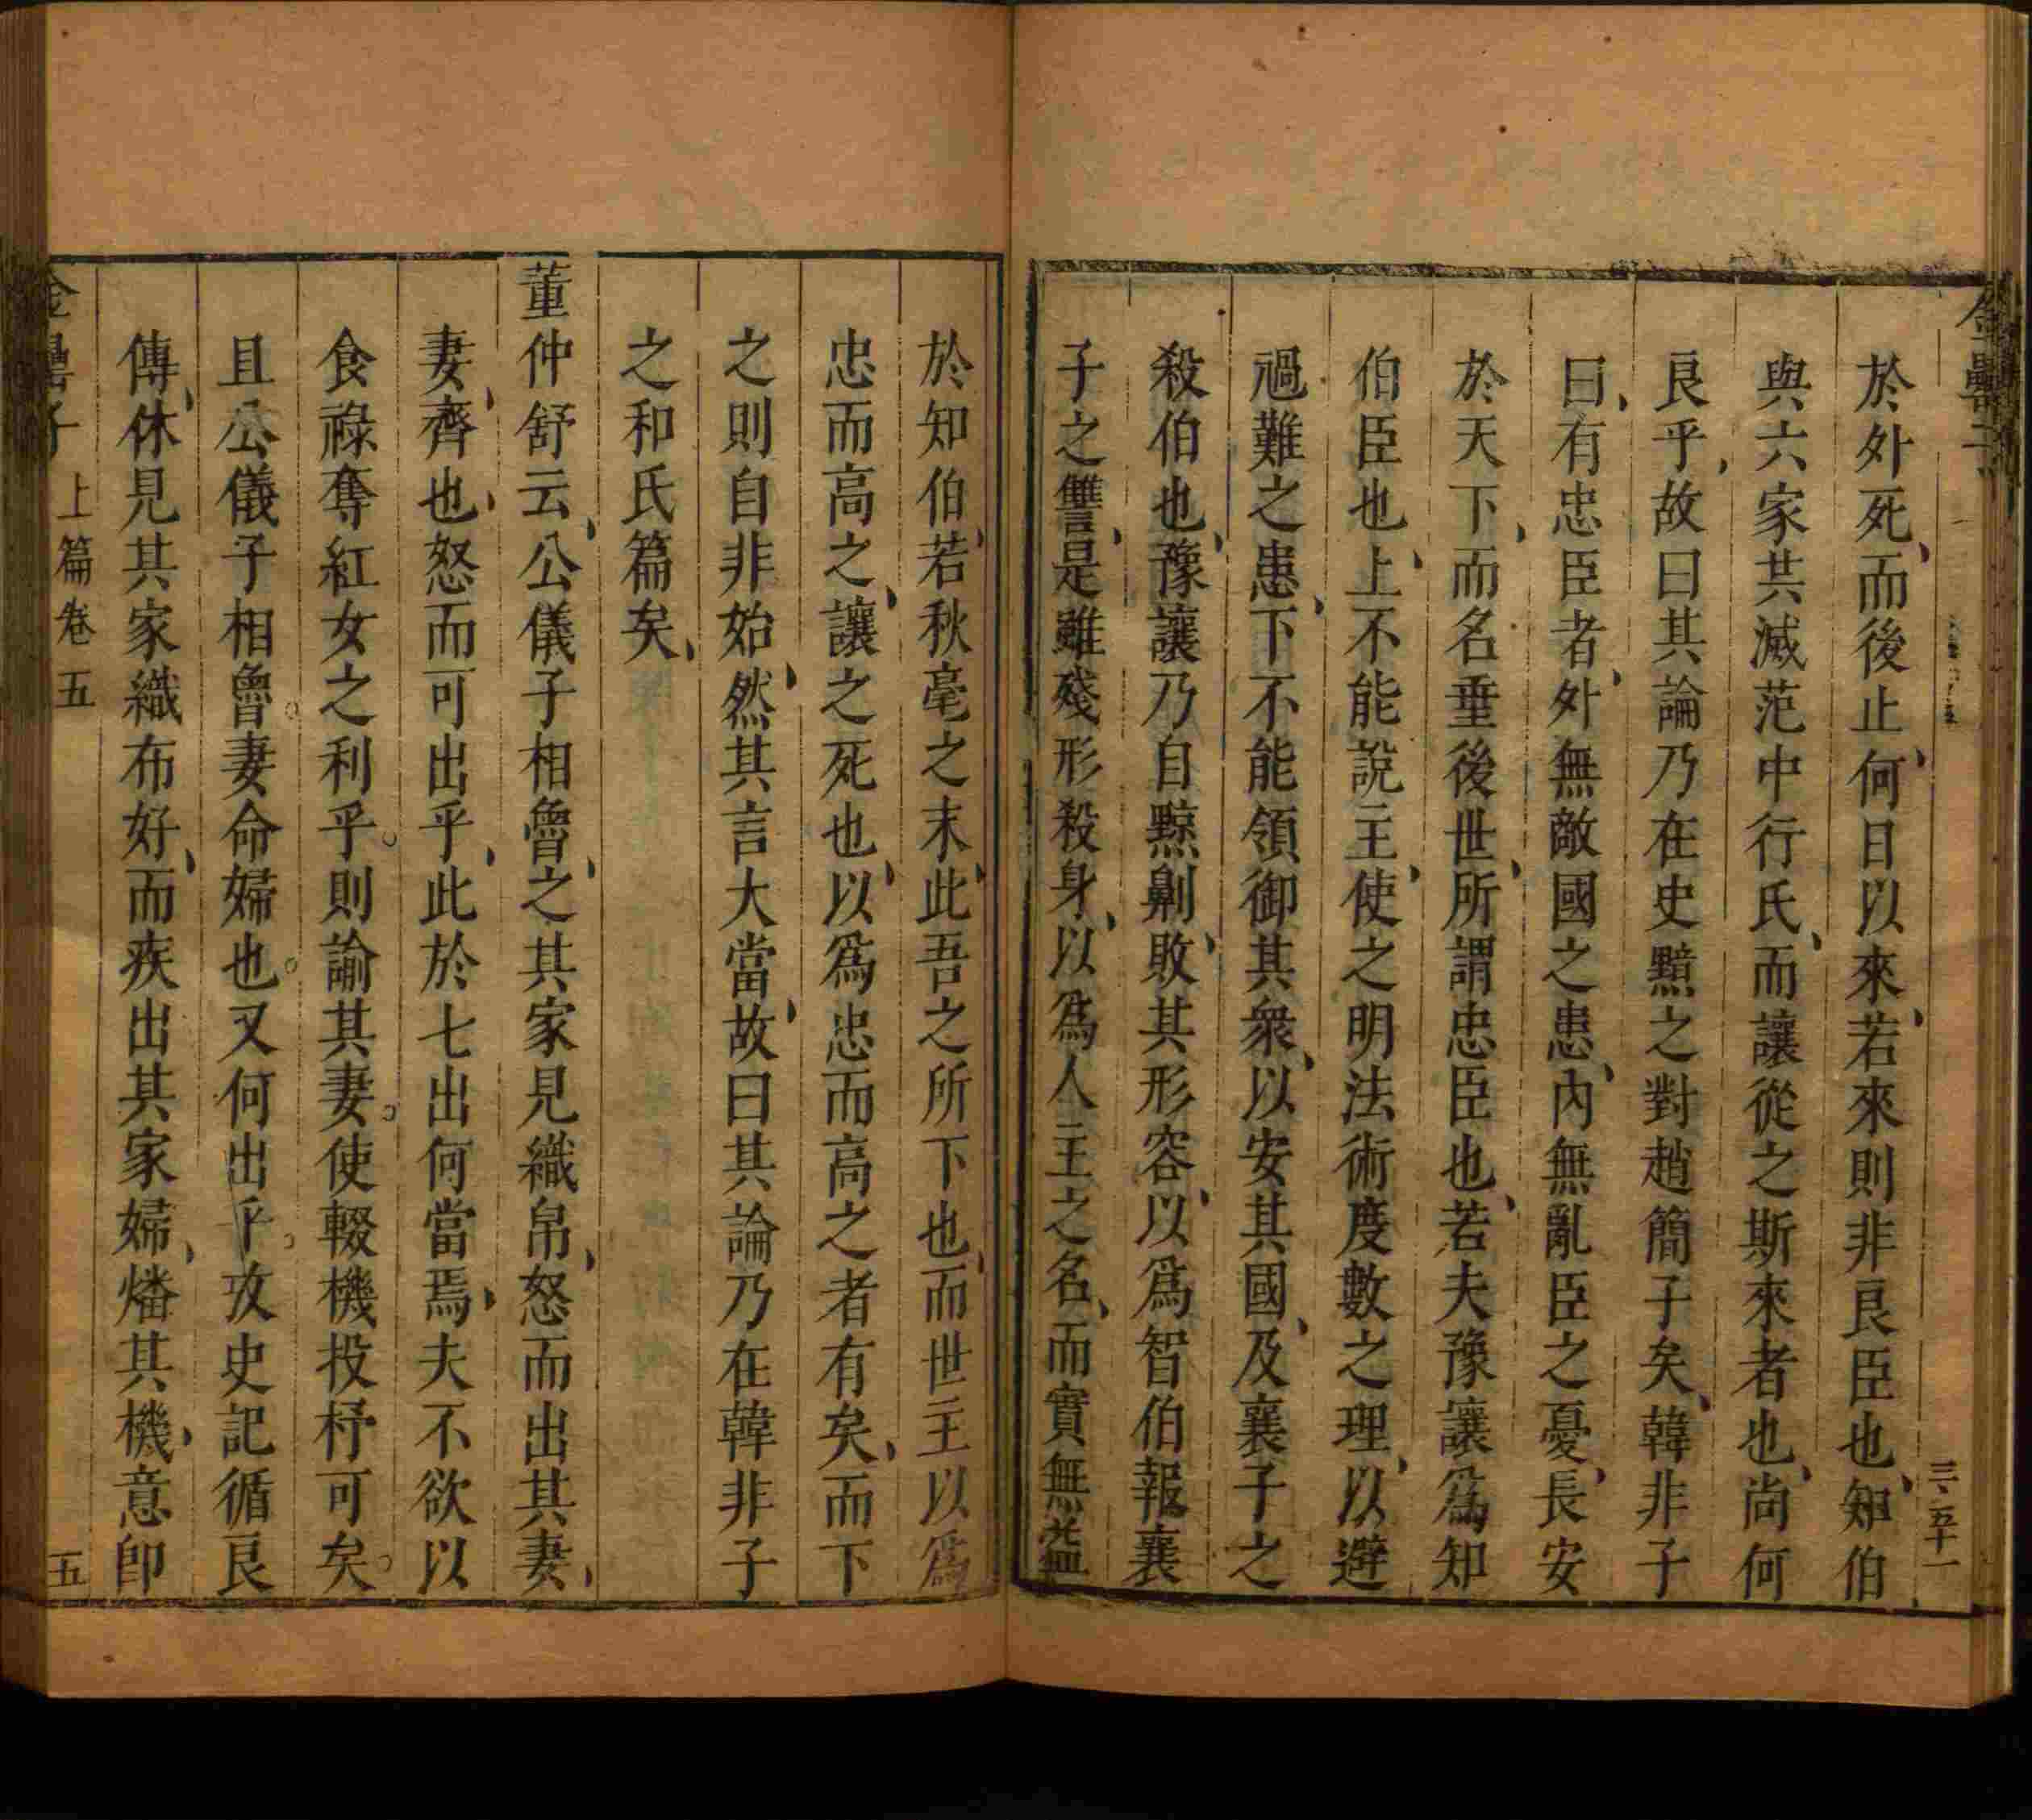 金罍子
三、五十一
於外死而後止何日以來若來則非良臣也知伯
與六家共滅范中行氏而讓從之斯來者也尚何
良乎故曰其論乃在史黯之對趙簡子矣韓非子
曰有忠臣者外無敵國之患內無亂臣之憂長安
於天下而名垂後世所謂忠臣也若夫豫讓爲知
伯臣也上不能說主使之明法術度數之理以避
禍難之患下不能領御其衆以安其國及襄子之
殺伯也豫讓乃自黥劓敗其形容以爲智伯報襄
子之讐是雖殘形殺身以爲人主之名而實無益
於知伯若秋毫之末此吾之所下也而世主以爲
忠而高之讓之死也以爲忠而高之者有矣而下
之則自非始然其言大當故曰其論乃在韓非子
之和氏篇矣
董仲舒云公儀子相魯之其家見織帛怒而出其妻
妻齊也怒而可出乎此於七出何當焉夫不欲以
食祿奪紅女之利乎則諭其妻使輟機投杼可矣
且公儀子相魯妻命婦也又何出乎攷史記循良
傳休見其家織布好而疾出其家婦燔其機意卽
金罍子 上篇卷五 五